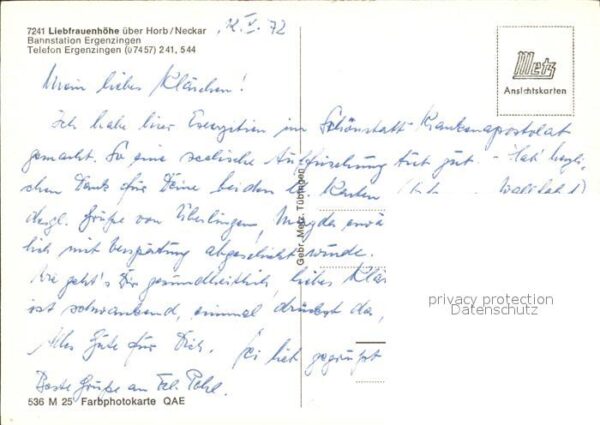 7241 Liebfrauenhöhe über Horb/Neckar
Bannstation Ergenzingen
Telefon Ergenzingen (07457) 241, 544
12. V. 72
Metz
Ansichtskarten
Mein liebes Klärchen!
Ich habe hier Exerzitien im Schönstatt-Krankenapostolat
gemacht. So eine seelische Auffrischung tut gut - Hab' herzli-
chen Dank für Deine beiden lb. Karten Wallfahrt)
desgl. Grüße von Überlingen,
lich mit Verspätung abgeschickt wurde.
Wie geht's Dir gesundheitlich, liebes Klär
ist schwankend, einmal drückt da,
Alles Gute für Dich. Sei lieb gegrüßt
Beste Grüße an Frl.
Gebr. Metz, Tübingen
privacy protection
Datenschutz
536 M 25 Farbphotokarte QAE